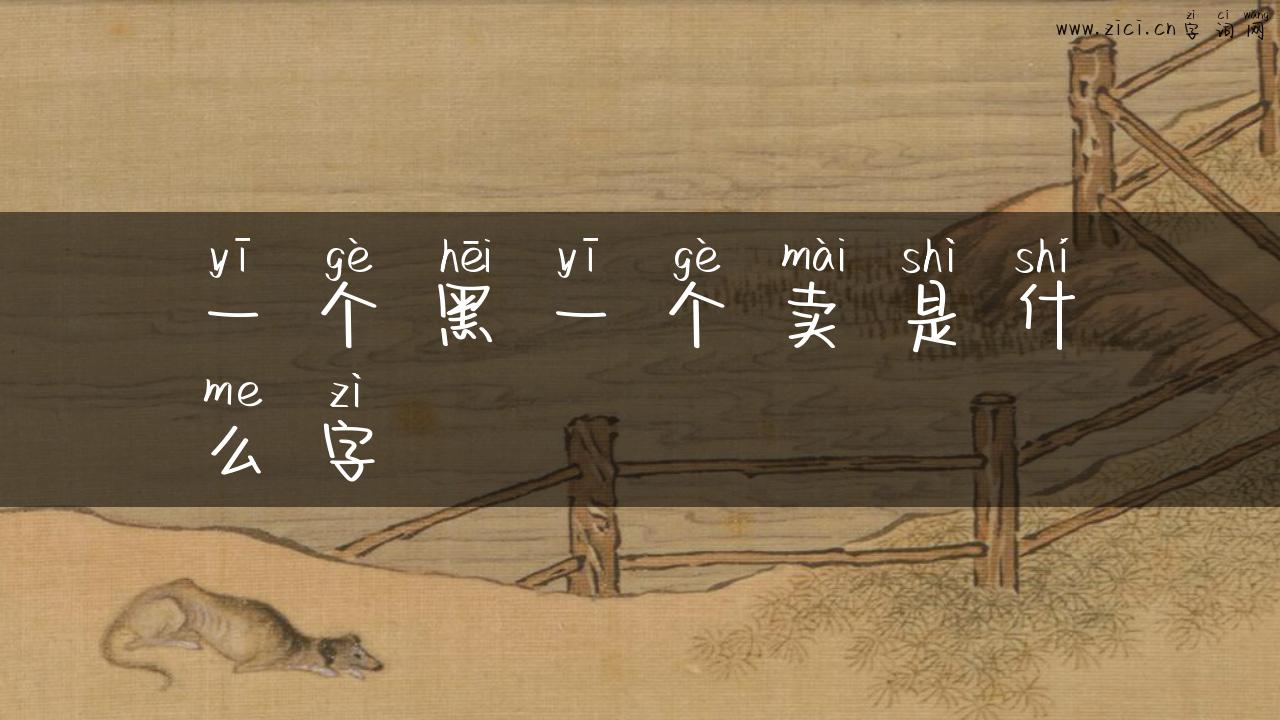 zì cí wǎng
www.zici.cn 字词网
yī gè hēi yī gè mài shì shí
一个黑一个卖是什
me zì
么字